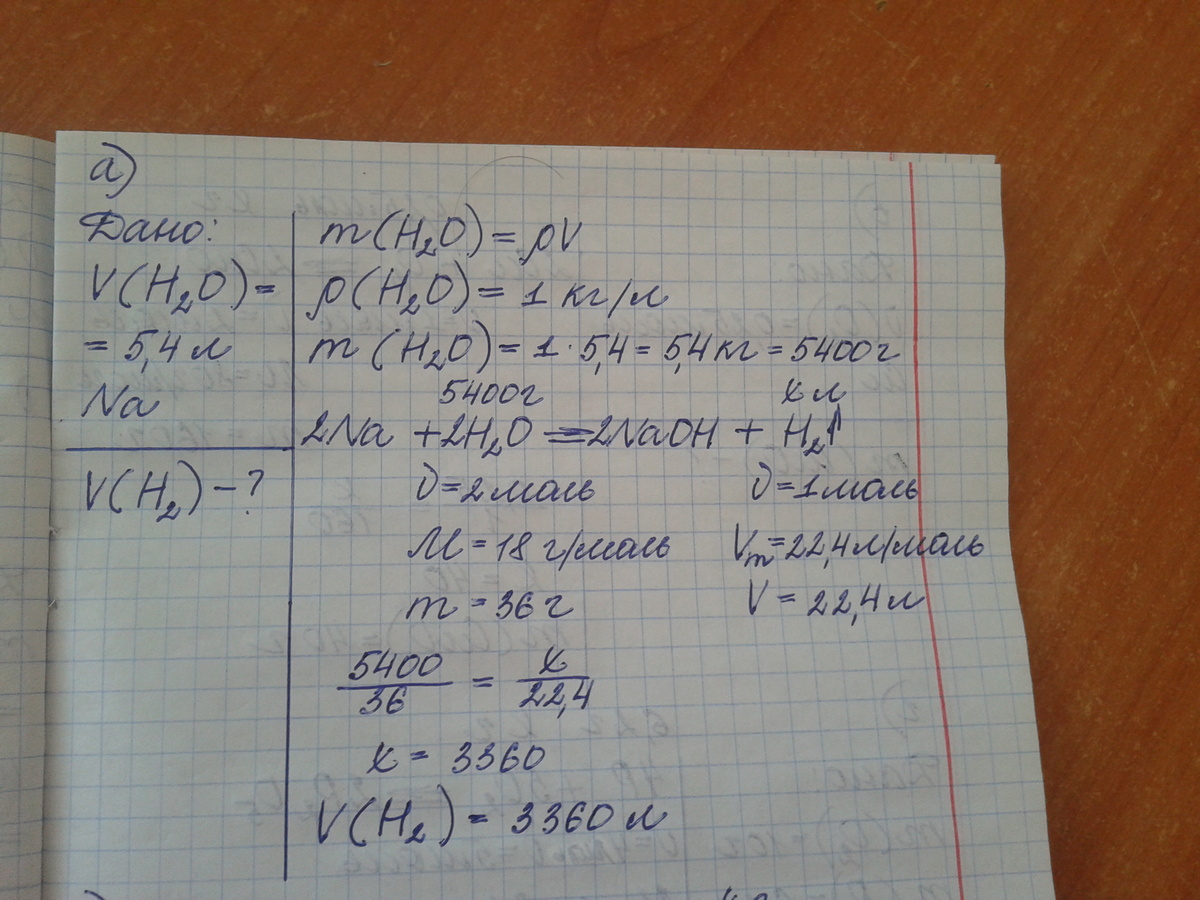 а)
Дано:
V(H₂O) =
= 5,4 л
Na
V(H₂) – ?
m(H₂O) = ρV
ρ(H₂O) = 1 кг/л
m(H₂O) = 1 · 5,4 = 5,4 кг = 5400 г
5400 г x л
2Na + 2H₂O = 2NaOH + H₂↑
ν = 2 моль ν = 1 моль
M = 18 г/моль Vm = 22,4 л/моль
m = 36 г V = 22,4 л
5400/36 = x/22,4
x = 3360
V(H₂) = 3360 л